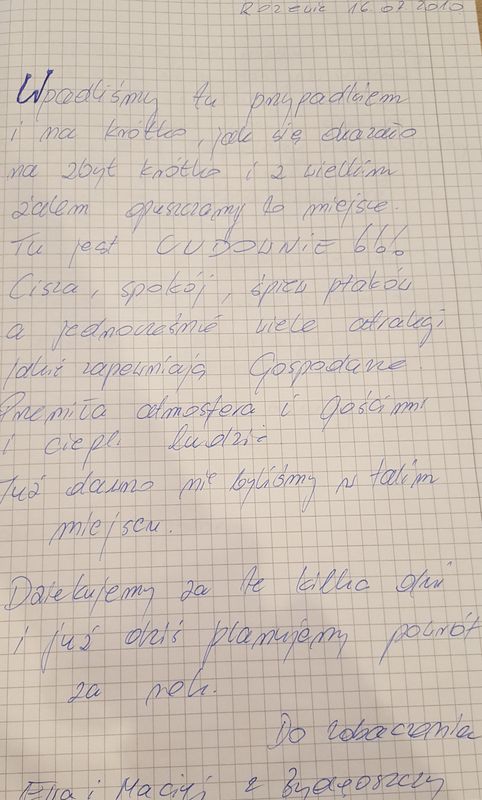 16.07.2010
Wpadliśmy tu przypadkiem
i na krótko, jak się okazało
na zbyt krótko i z wielkim
żalem opuszczamy to miejsce.
Tu jest CUDOWNIE!!!
Cisza, spokój, śpiew ptaków
a jednocześnie wiele atrakcji
jakie zapewniają Gospodarze.
Przemiła atmosfera i gościnni
i ciepli ludzie
Już dawno nie byliśmy w takim
miejscu.
Dziękujemy za te kilka dni
i już dziś planujemy powrót
za rok.
Do zobaczenia
i Maciej z Bydgoszczy